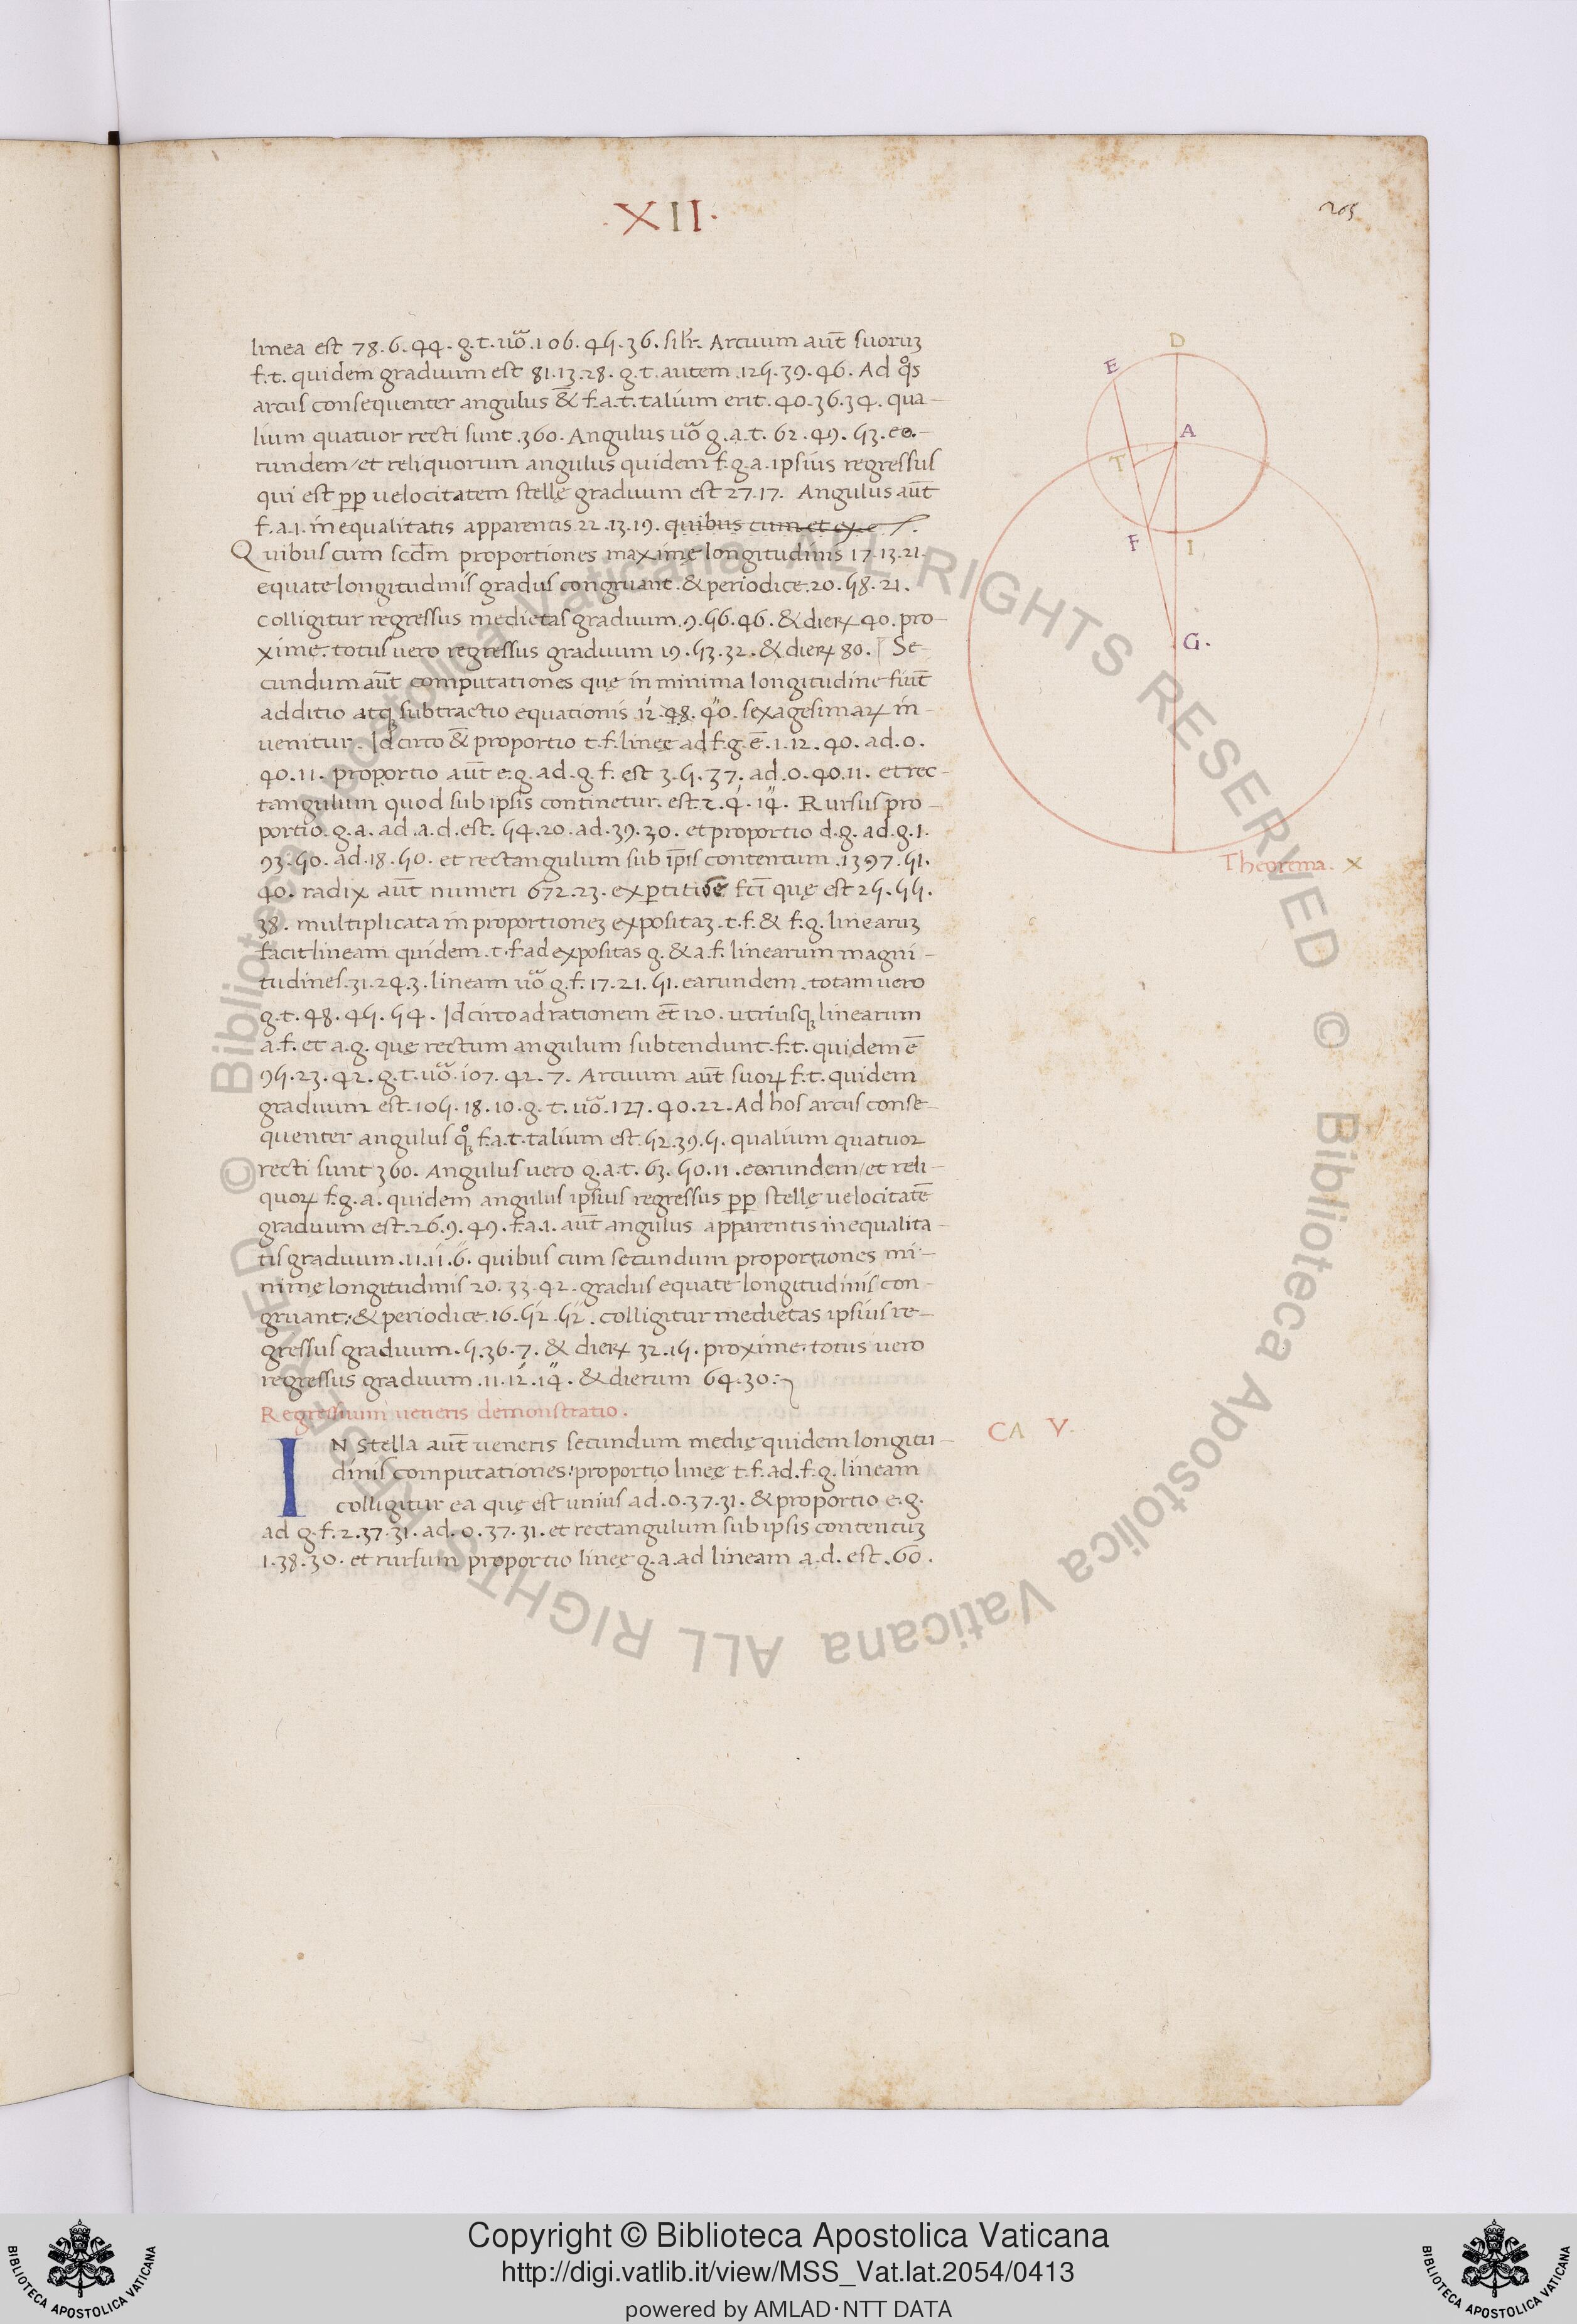 .XII.
205
linea est 78.6.44. g.t. uõ. 106.45.36. silr. Arcuum aut̄ suoruʒ
f.t. quidem graduum est 81.13.28. g.t. autem .125.39.46. Ad q̊s
arcus consequenter angulus & f.a.t. talium erit. 40.36.34. qua-
lium quatuor recti sunt .360. Angulus uõ g.a.t. 62.49.53. eo.-
rundem/et reliquorum angulus quidem f.g.a. ipsius regressus
qui est pp velocitatem stellę graduum est 27.17. Angulus aut̄
f.a.i. inequalitatis apparentis 22.13.19. quibus cum et ex
Quibus cum scdm proportiones maximę longitudinis 17.13.21.
equate longitudinis gradus congruant. & periodice. 20.58.21.
colligitur regressus medietas graduum .9.56.46. & dieꝝ 40. pro-
xime. totus vero regressus graduum 19.53.32. & dieꝝ 80. Se-
cundum aut̄ computationes quę in minima longitudine fiut̄
additio atqꝫ subtractio equationis 12.48.40. sexagesimaꝝ in-
uenitur. Idcirco & proportio t.f. lineę ad f.g. ē. 1.12.40. ad.0.
40.11. proportio aut̄ e.g. ad.g.f. est 3.5.37. ad.0.40.11. et rec-
tangulum quod sub ipsis continetur. est. 2.4.14. Rursus pro-
portio. g.a. ad.a.d. est. 54.20. ad.39.30. et proportio d.g. ad.g.i.
93.50. ad.18.50. et rectangulum sub ip̄is contentum .1397.51.
40. radix aut̄ numeri 672.23. fc̄i quę est 25.55.
38. multiplicata in proportioneʒ expositaʒ .t.f. & f.g. linearuʒ
facit lineam quidem .t.f. ad expositas g. & a.f. linearum magni-
tudines.31.24.3. lineam uõ g.f. 17.21.51. earundem. totam vero
g.t. 48.45.54. Idcirco ad rationem et̄ 120. utriusqꝫ linearum
a.f. et a.g. quę rectum angulum subtendunt. f.t. quidem ē
95.23.42. g.t. uõ. 107.42.7. Arcuum aut̄ suoꝝ f.t. quidem
graduum est. 105.18.10. g.t. uõ. 127.40.22. Ad hos arcus conse-
quenter angulus qꝫ f.a.t. talium est. 52.39.5. qualium quatuor
recti sunt 360. Angulus vero g.a.t. 63.50.11. eorundem/et reli-
quoꝝ f.g.a. quidem angulus ipsius regressus pp stellę velocitatē
graduum est. 26.9.49. f.a.i. aut̄ angulus apparentis inequalita-
tis graduum .11.11.6. quibus cum secundum proportiones mi-
nimę longitudinis 20.33.42. gradus equate longitudinis con-
gruant: & periodice. 16.52.52. colligitur medietas ipsius re-
gressus graduum. 5.36.7. & dieꝝ 32.15. proxime. totus vero
regressus graduum .11.12.14. & dierum 64.30.
Regressuum ueneris demonstratio.
IN stella aut̄ ueneris secundum medię quidem longitu-
dinis computationes: proportio lineę t.f. ad. f.g. lineam
colligitur ea quę est unius ad.0.37.31. & proportio e.g.
ad g.f. 2.37.31. ad.0.37.31. et rectangulum sub ipsis contentuʒ
1.38.30. et rursum proportio lineę g.a. ad lineam a.d. est. 60.
D
E
A
T
F
I
G.
Theorema. X
CA V.
© Biblioteca Apostolica Vaticana ALL RIGHTS RESERVED © Biblioteca Apostolica Vaticana ALL RIGHTS RESERVED
BIBLIOTECA APOSTOLICA VATICANA
Copyright © Biblioteca Apostolica Vaticana
http://digi.vatlib.it/view/MSS_Vat.lat.2054/0413
powered by AMLAD·NTT DATA
BIBLIOTECA APOSTOLICA VATICANA